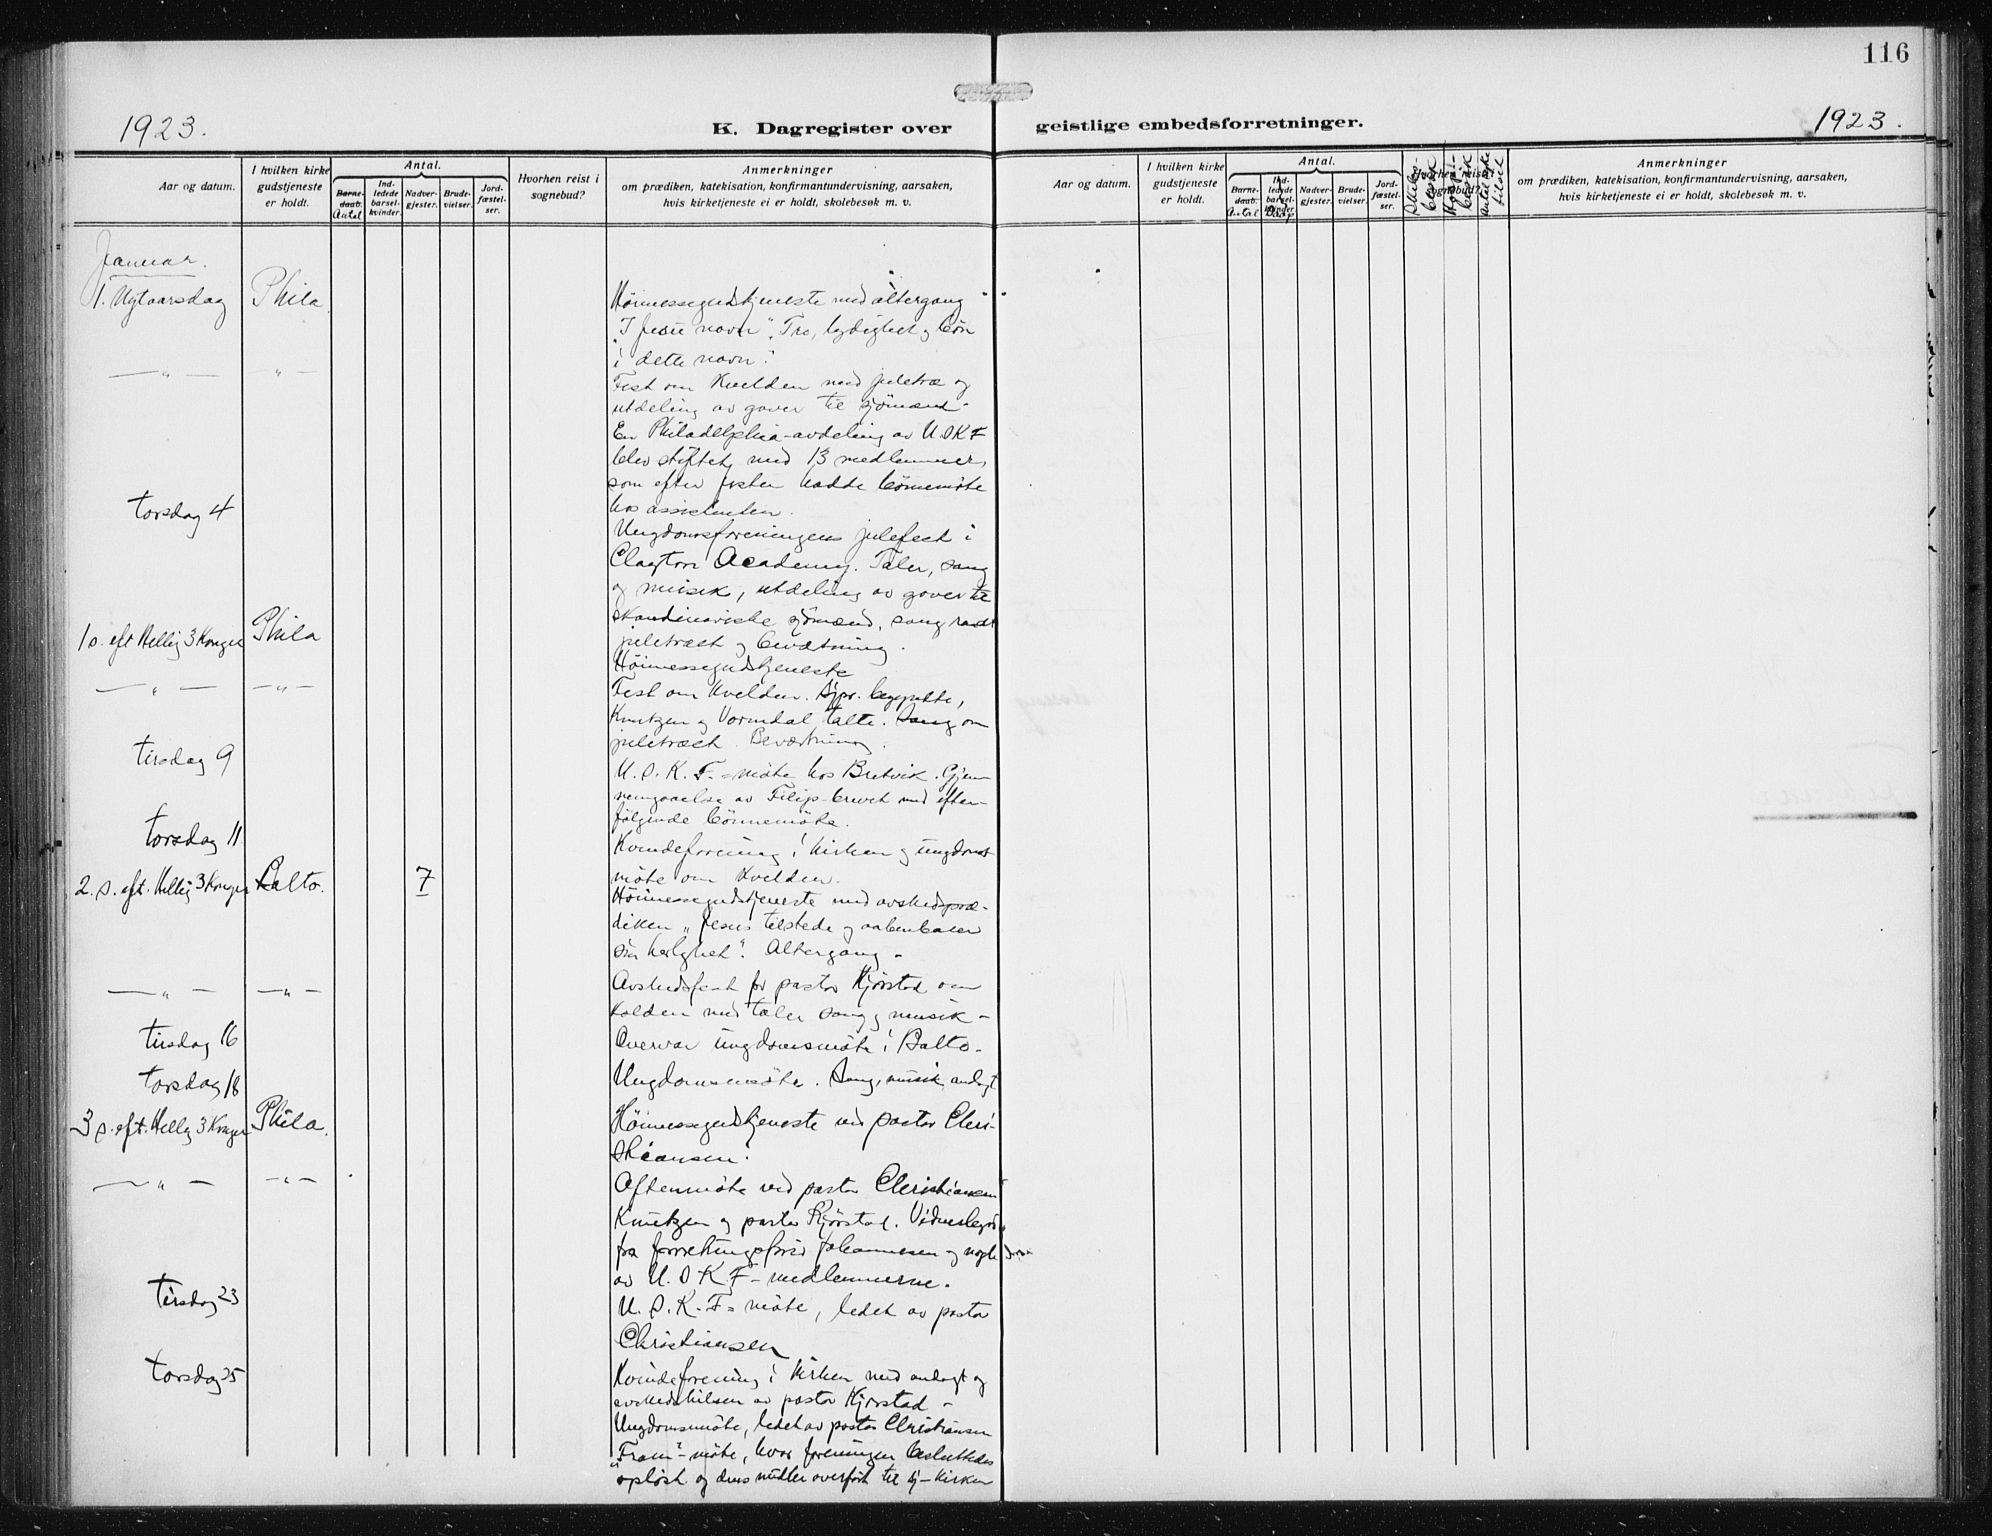 116
1923.
K. Dagregister over
geistlige embedsforretninger.
1923.
Aar og datum.
I hvilken kirke gudstjeneste er holdt.
Antal.
Barne-daab.
Antal
Ind-ledede barsel-kvinder.
Nadver-gjester.
Brude-vielser.
Jord-fæstel-ser.
Hvorhen reist i sognebud?
Anmerkninger
om prædiken, katekisation, konfirmantundervisning, aarsaken,
hvis kirketjeneste ei er holdt, skolebesøk m. v.
Aar og datum.
I hvilken kirke gudstjeneste er holdt.
Antal.
Barne-daab.
Antal
Ind-ledede barsel-kvinder.
Nadver-gjester.
Brude-vielser.
Jord-fæstel-ser.
Hvorhen reist i sognebud?
Anmerkninger
om prædiken, katekisation, konfirmantundervisning, aarsaken,
hvis kirketjeneste ei er holdt, skolebesøk m. v.
Januar.
1. Nytaarsdag
Phila
Höimessegudstjeneste med altergang
"I Jesu navn". Tro, lydighet og bön
i dette navn."
— " —
— " —
Fest om kvelden med juletræ og
utdeling av gaver til sjömænd.
En Philadelphia-avdeling av U.S.K.F
blev stiftet med 13 medlemmer,
som efter festen hadde bönnemöte
hos assistenten.
Torsdag 4
Ungdomsforeningens julefest i
Clayton Academy. Taler, sang
og musik, utdeling av gaver til
skandinaviske sjömænd, sang rundt
juletræet og bevertning.
1 s. eft Hellig 3 Konger
Phila
Höimessegudstjeneste
— " —
— " —
Fest om kvelden. Sjpr. begyndte,
Knutzen og Vormdal talte. Sang om
juletræet. Beværtning.
Tirsdag 9
U.S.K.F.-möte hos Bretvik. Gjen-
nemgaaelse av Filip-brevet med efter-
fölgende bönnemöte.
Torsdag 11
Kvindeforening i kirken og ungdoms
möte om kvelden.
2. s. eft. Hellig 3 Konger
Balto.
7
Höimessegudstjeneste med avskedspræ-
diken "Jesus tilstede og aabenbarer
sin herlighet". Altergang.
— " —
— " —
Avskedsfest for pastor Kjørstad om
kvelden med taler sang og musik.
Tirsdag 16
Overvar ungdomsmöte i Balto.
Torsdag 18
Ungdomsmöte. Sang, musik, andagt
3 s. eft. Hellig 3 Konger
Phila.
Höimessegudstjeneste ved pastor Chri-
stiansen.
— " —
— " —
Aftenmöte ved pastor Christiansen
Knutzen og pastor Kjørstad. Vidnesbyrd
fra forretningsförer Johannesen og nogle
av U.S.K.F-medlemmerne.
Tirsdag 23
U.S.K.F=möte, ledet av pastor
Christiansen
Torsdag 25
Kvindeforening i kirken med andagt og
avskedshilsen av pastor Kjørstad.
Ungdomsmöte, ledet av pastor Christiansen
"Fram"-möte, hvor foreningen besluttedes
oplöst og dens midler overfört til sj-kirken